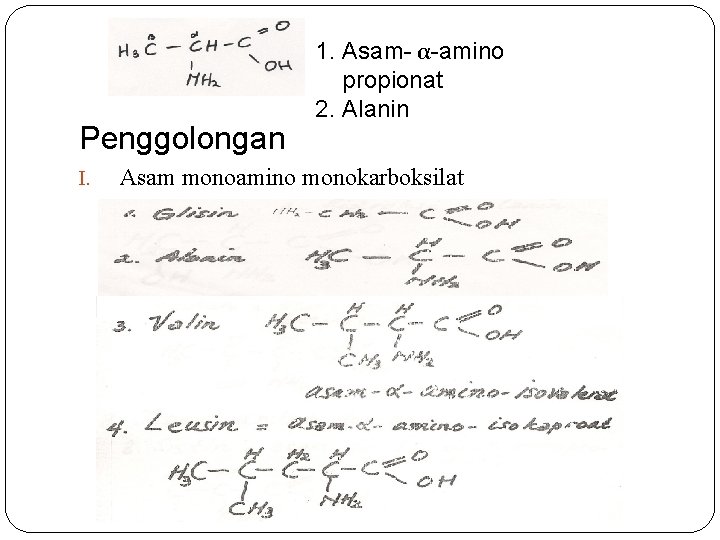 H₃C − CH − C = O
β α
NH₂ OH
1. Asam- α-amino
propionat
2. Alanin
Penggolongan
I. Asam monoamino monokarboksilat
1. Glisin NH₂ − CH₂ − C = O
OH
2. Alanin H₃C − C − C = O
H
NH₂ OH
3. Valin H₃C − C − C − C = O
H H
CH₃ NH₂ OH
asam-α-amino-isovalerat
4. Leusin = asam-α-amino-isokaproat
H H₂ H
H₃C − C − C − C − C = O
OH
CH₃ NH₂